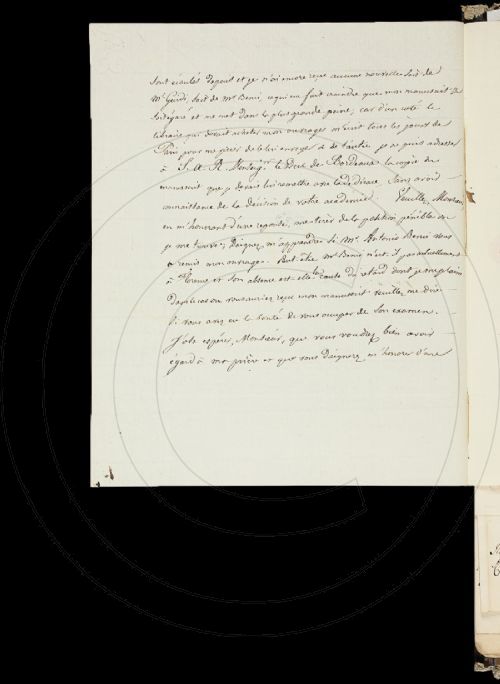 sont écoulés depuis et je n'ai encore reçu aucune nouvelle soit de
Mr Guidi, soit de Mr Benci, ce qui me fait craindre que mon manuscrit ne
soit égaré et me met dans la plus grande peine, car d'un coté le
libraire qui devait acheter mon ouvrage m'écrit tous les jours de
Paris pour me prier de le lui envoyer et de l'autre je ne puis adresser
à S. A. R. Monseigr le Duc de Bordeaux la copie du
manuscrit que je devais lui remettre avec la dédicace sans avoir
connaissance de la décision de votre académie. Veuillez, Monsieur
en m'honorant d'une reponse, me tirer de la position pénible où
je me trouve; Daignez m'apprendre si Mr Antonio Benci vous
a remis mon ouvrage. Peut-être Mr Benci n'est-il pas actuellement
à Florence et son absence est elle la cause du retard dont je me plains
Dans le cas où vous auriez reçu mon manuscrit veuillez me dire
si vous avez eu la bonté de vous occuper de son examen.
J'ose espérer, Monsieur, que vous voudrez bien avoir
égard à ma prière et que vous daignerez m'honorer d'une